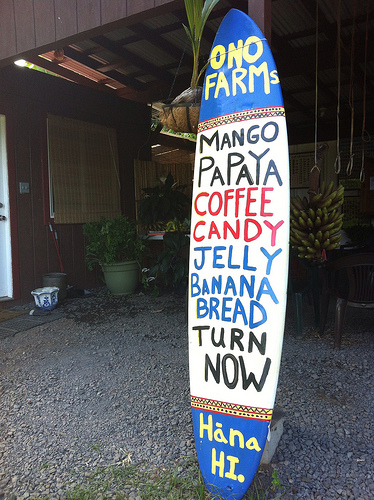 ONO
FARMs
MANGO
PAPAYA
COFFEE
CANDY
JELLY
BANANA
BREAD
TURN
NOW
Hāna
HI.